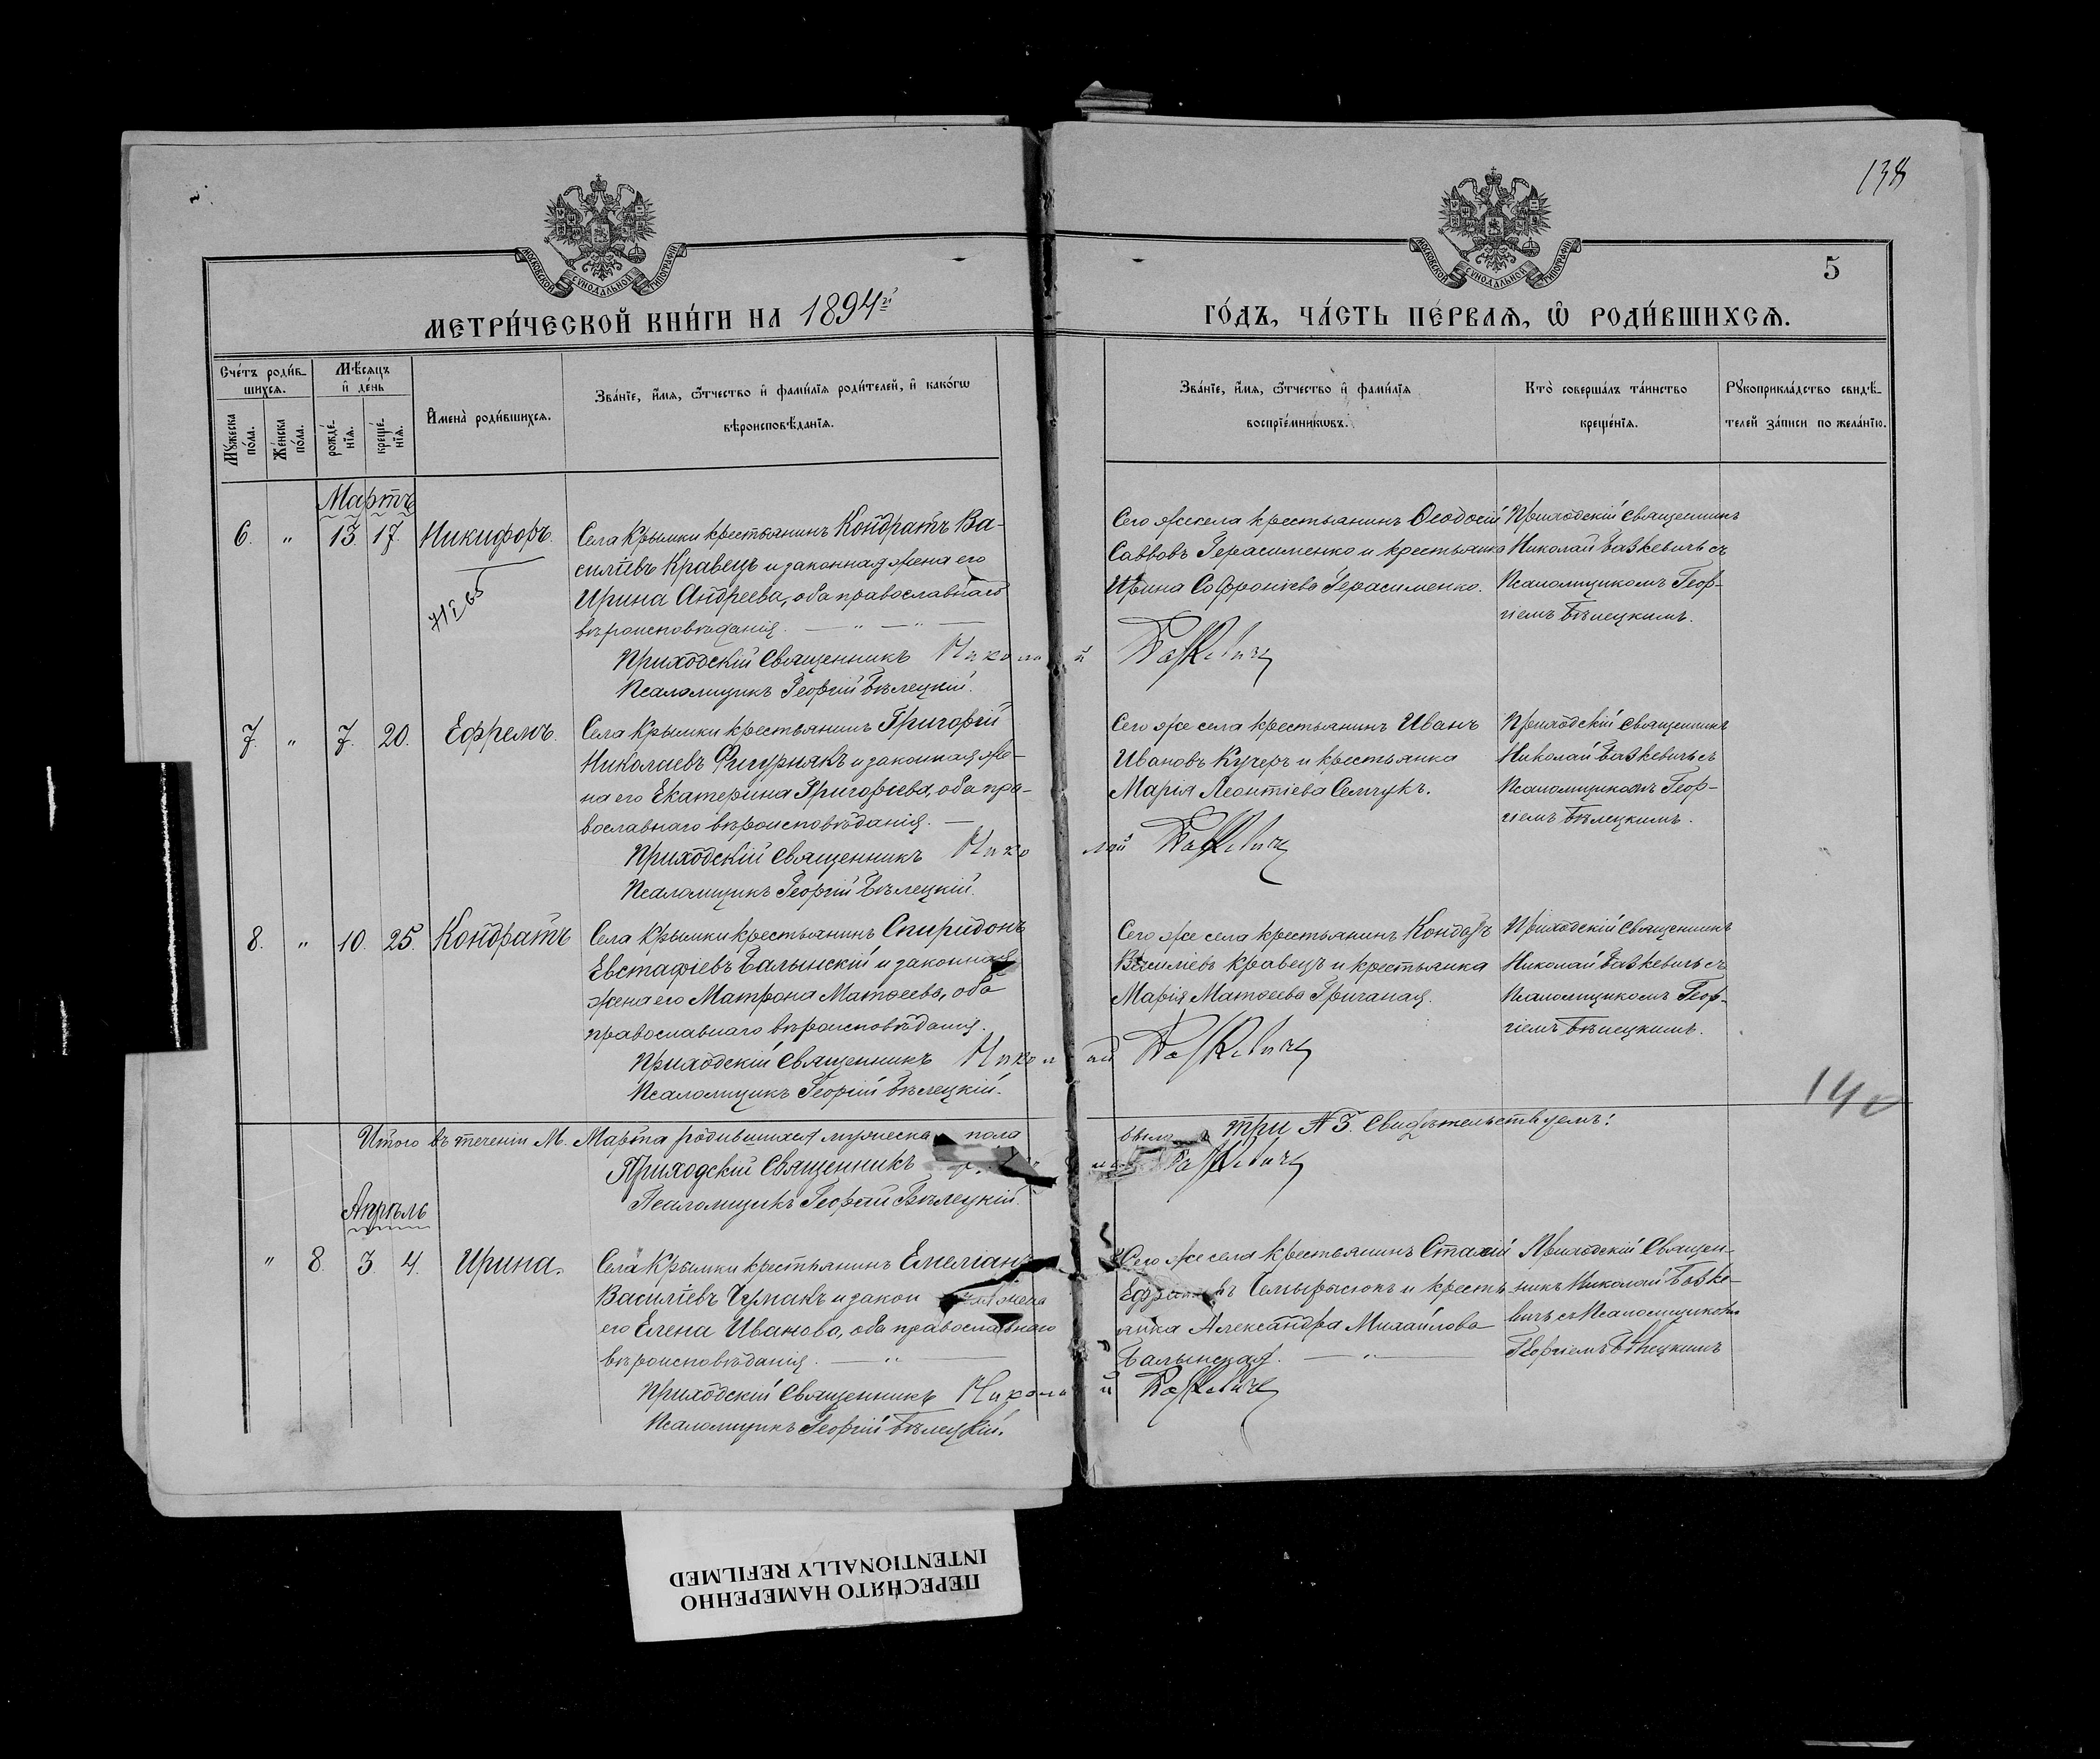 138
МОСКОВСКОЙ СУНОДАЛЬНОЙ ТИПОГРАФІИ
МОСКОВСКОЙ СУНОДАЛЬНОЙ ТИПОГРАФІИ
5
МЕТРИ́ЧЕСКОЙ КНИ́ГИ НА 1894й
ГО́ДЪ, ЧА́СТЬ ПЕ́РВАѦ, Ѡ РОДИ́ВШИХСѦ.
Сче́тъ роди́вшихсѧ.
Мꙋжеска по́ла.
Же́нска по́ла.
Мѣ́сѧцъ и де́нь
рожде́нїѧ.
креще́нїѧ.
Имена̀ роди́вшихсѧ.
Зва́нїе, и́мѧ, ѻ҆́тчество и фами́лїѧ роди́телей, и како́гѡ
вѣроисповѣ́данїѧ.
Зва́нїе, и́мѧ, ѻ҆́тчество и фами́лїѧ
воспрїе́мникѡвъ.
Кто̀ соверша́лъ та́инство
креще́нїѧ.
Рꙋкоприкла́дство свидѣ́-
телей за́писи по жела́нїю.
Мартъ
6. " 13. 17. Никифоръ.
Села Крымки крестьянинъ Кондратъ Ва-
силіевъ Кравецъ и законная жена его
Ирина Андреева, оба православнаго
вѣроисповѣданія. — " — " —
Приходскій Священникъ Николай Базкевичъ
Псаломщикъ Георгій Бѣлецкій.
Сего же села крестьянинъ Ѳеодосій
Саввовъ Герасименко и крестьянка
Ирина Софроніева Герасименко.
Приходскій Священникъ
Николай Базкевичъ съ
Псаломщикомъ Геор-
гіемъ Бѣлецкимъ.
7. " 7. 20. Ефремъ.
Села Крымки крестьянинъ Григорій
Николаевъ Фигурнякъ и законная же-
на его Екатерина Григоріева, оба пра-
вославнаго вѣроисповѣданія. —
Приходскій Священникъ Николай Базкевичъ
Псаломщикъ Георгій Бѣлецкій.
Сего же села крестьянинъ Иванъ
Ивановъ Кучеръ и крестьянка
Марія Леонтіева Семчукъ.
Приходскій Священникъ
Николай Базкевичъ съ
Псаломщикомъ Геор-
гіемъ Бѣлецкимъ.
8. " 10. 25. Кондратъ
Села Крымки крестьянинъ Спиридонъ
Евстафіевъ Балынскій и законная
жена его Матрона Матѳеева, оба
православнаго вѣроисповѣданія.
Приходскій Священникъ Николай Базкевичъ
Псаломщикъ Георгій Бѣлецкій.
Сего же села крестьянинъ Кондратъ
Василіевъ Кравецъ и крестьянка
Марія Матѳеева Гричаная.
Приходскій Священникъ
Николай Базкевичъ съ
Псаломщикомъ Геор-
гіемъ Бѣлецкимъ.
Итого въ теченіи М. Марта родившихся мужеска пола было три № 3. Свидѣтельствуемъ:
Приходскій Священникъ Базкевичъ
Псаломщикъ Георгій Бѣлецкій.
Апрѣль
" 8. 3. 4. Ирина.
Села Крымки крестьянинъ Емеліанъ
Василіевъ Чумакъ и закон жена
его Елена Иванова, оба православнаго
вѣроисповѣданія. — " —
Приходскій Священникъ Николай Базкевичъ
Псаломщикъ Георгій Бѣлецкій.
Сего же села крестьянинъ Стахій
въ Чемырысюкъ и кресть
янка Александра Михаилова
Балынская. — " —
Приходскій Священ-
никъ Николай Базке-
вичъ съ Псаломщикомъ
Георгіемъ Бѣлецкимъ
ПЕРЕСНЯТО НАМЕРЕННО
INTENTIONALLY REFILMED